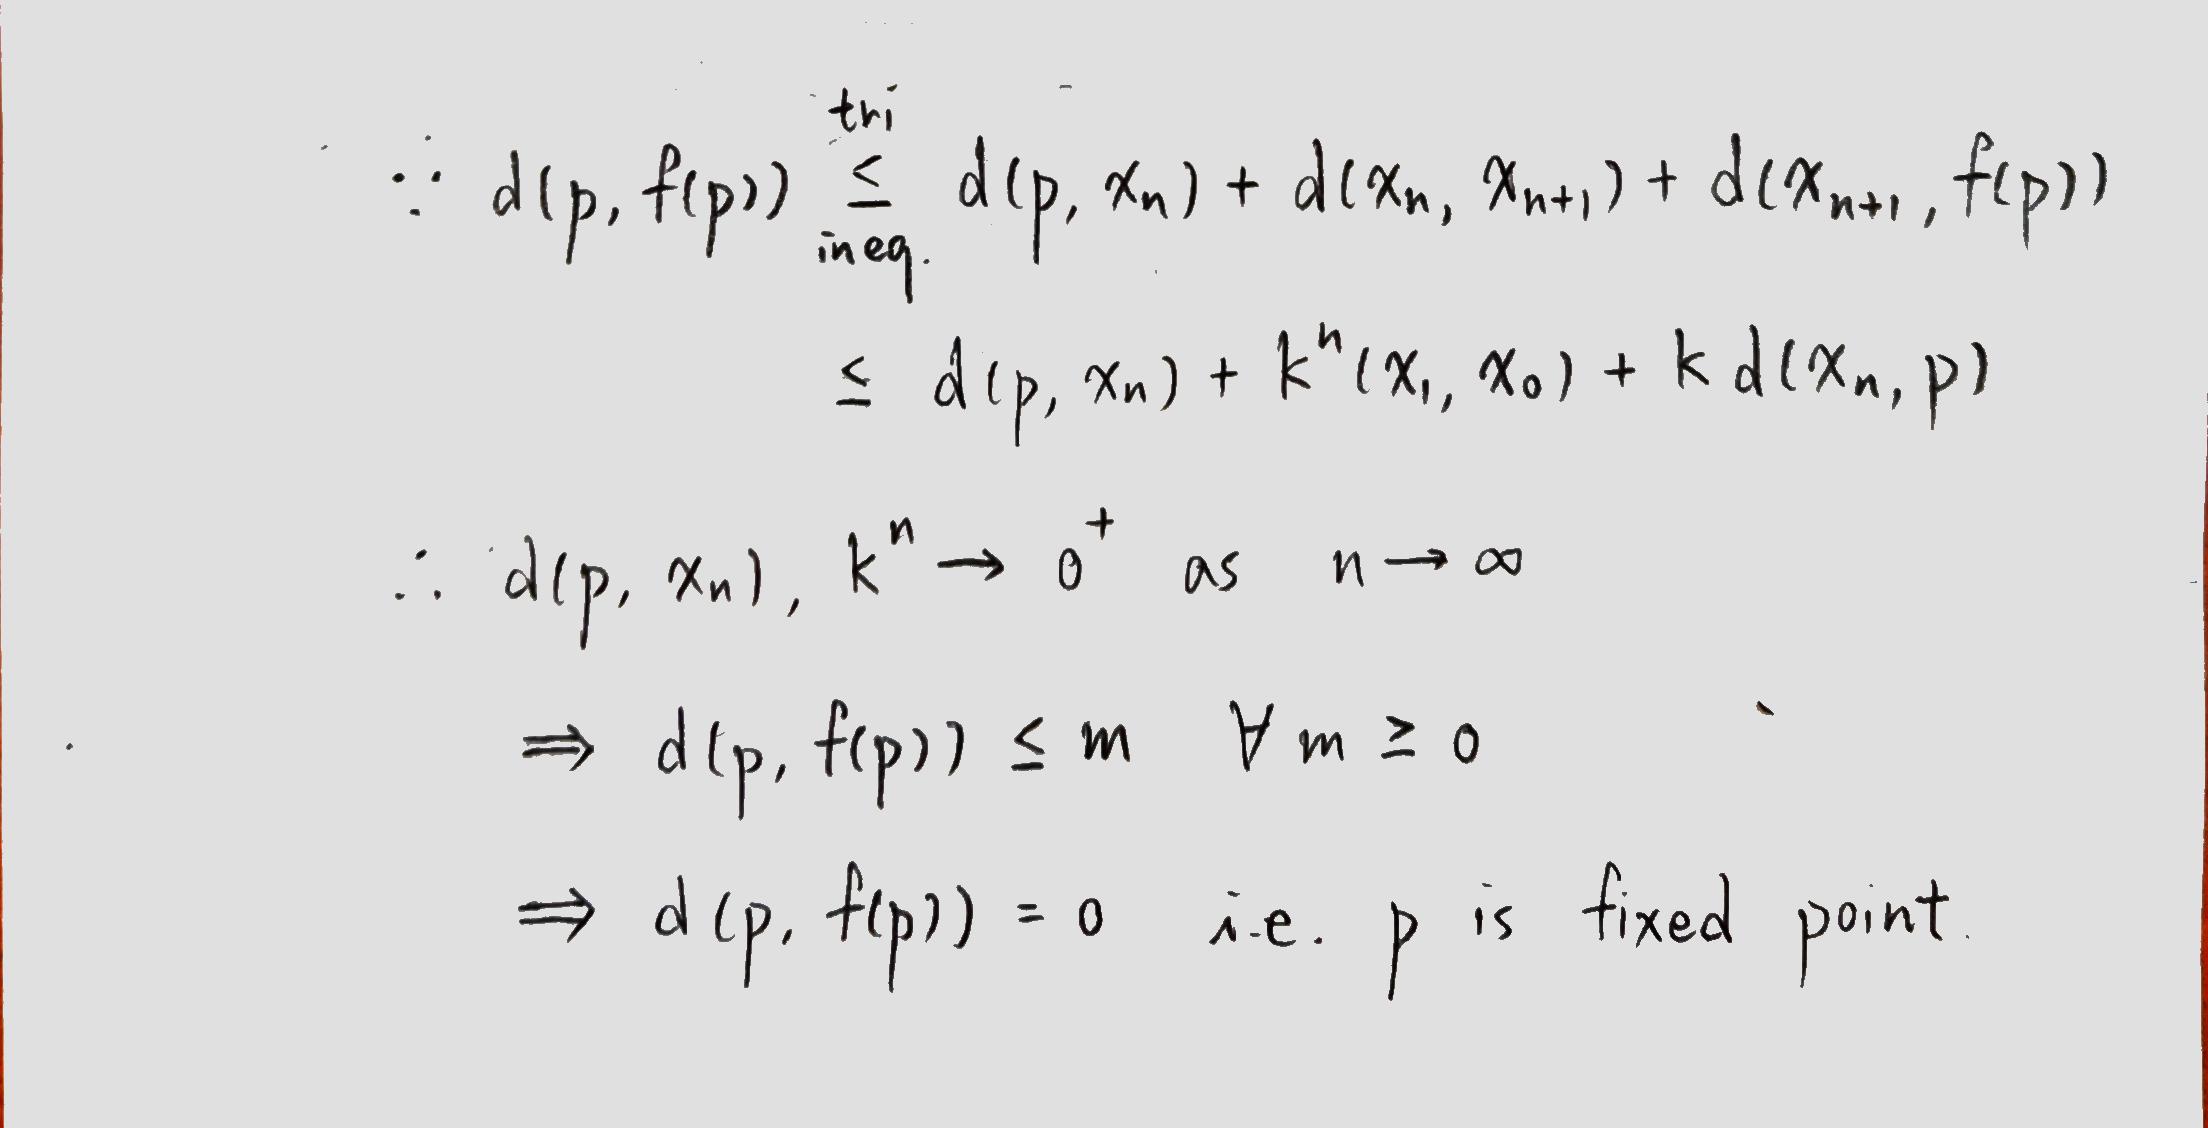 ∵ d(p, f(p)) ≤ (tri ineq.) d(p, xₙ) + d(xₙ, xₙ₊₁) + d(xₙ₊₁, f(p))
≤ d(p, xₙ) + kⁿ(x₁, x₀) + k d(xₙ, p)
∴ d(p, xₙ), kⁿ → 0⁺ as n → ∞
⇒ d(p, f(p)) ≤ m ∀ m ≥ 0
⇒ d(p, f(p)) = 0 i.e. p is fixed point.